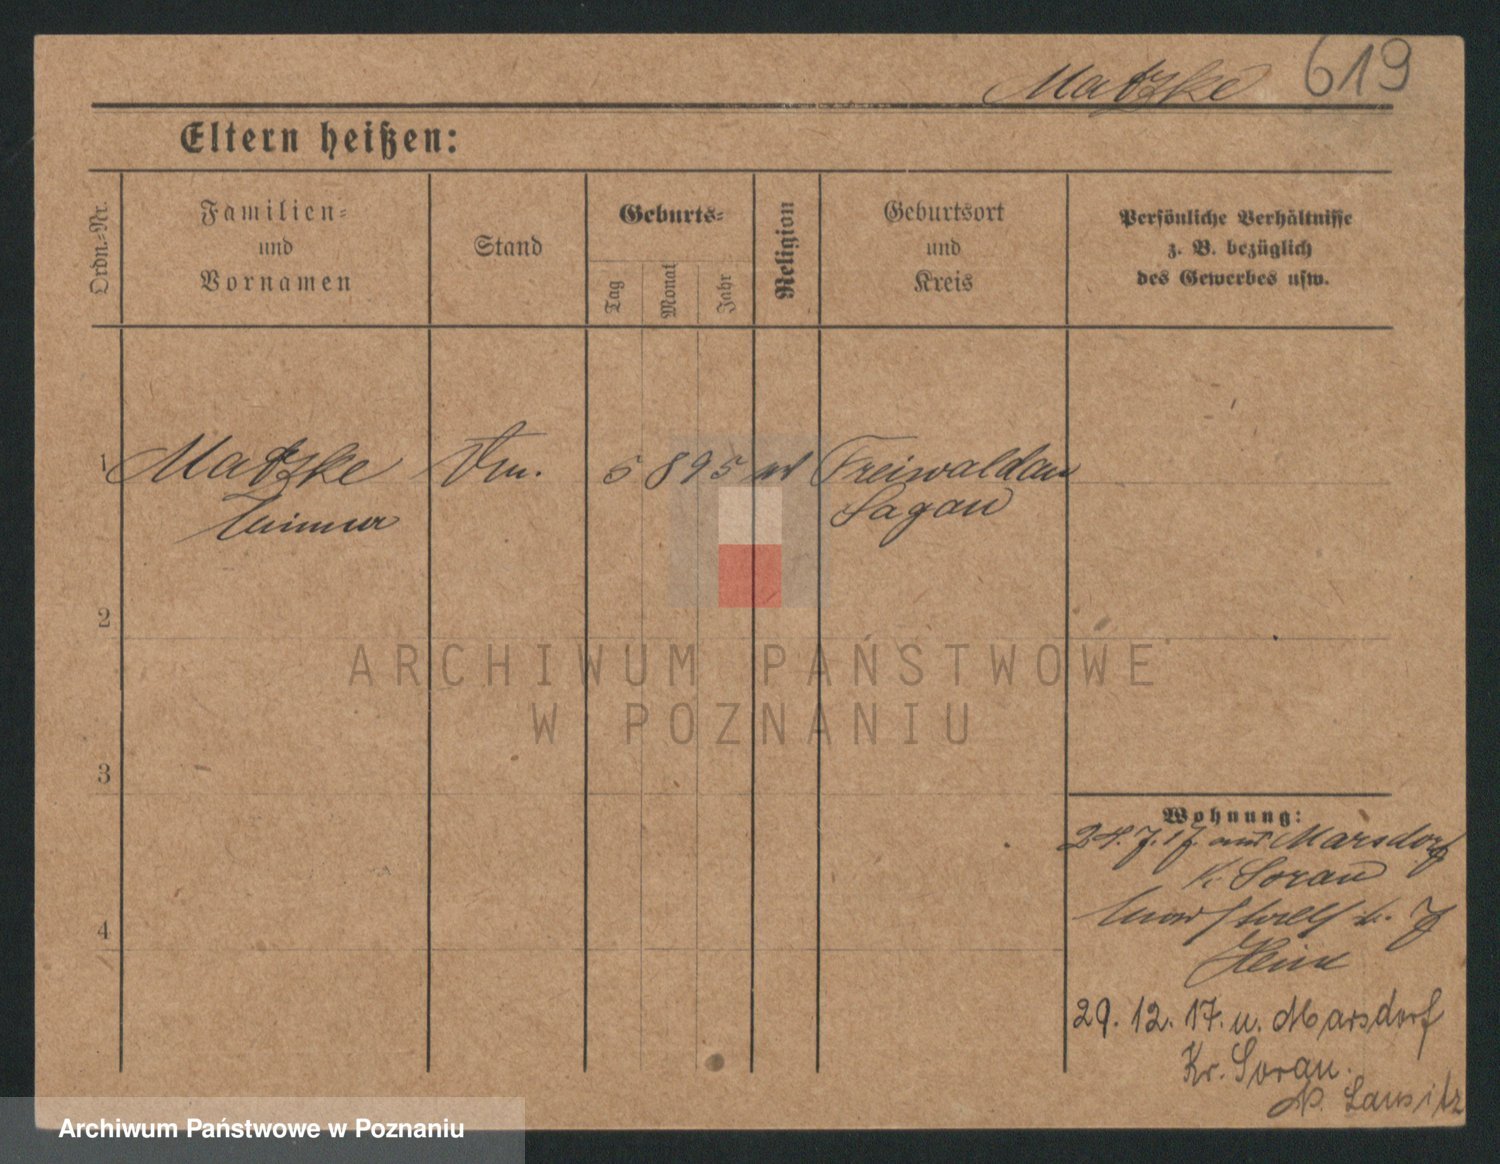 Matzke 619
Eltern heißen:
Ordn.-Nr.
Familien-
und
Vornamen
Stand
Geburts-
Tag
Monat
Jahr
Religion
Geburtsort
und
Kreis
Persönliche Verhältnisse
z. B. bezüglich
des Gewerbes usw.
1 Matzke 5 8 95 Freiwaldau
Sagan
2
3
4
Wohnung:
24. 7. 17. aus Marsdorf
K. Sorau
29. 12. 17. n. Marsdorf
Kr. Sorau.
N. Lausitz
ARCHIWUM PAŃSTWOWE
W POZNANIU
Archiwum Państwowe w Poznaniu